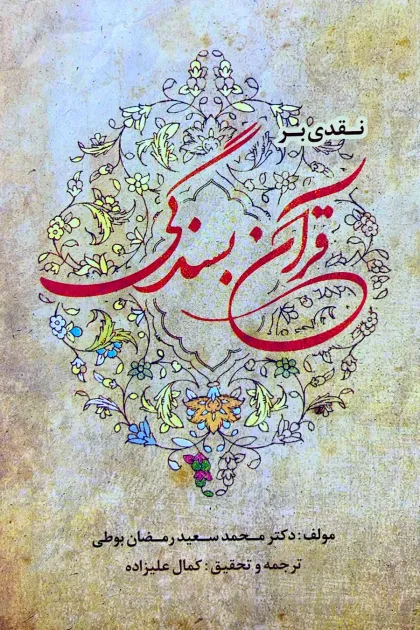 نقدی بر
قرآن بسندگی
مولف: دکتر محمد سعید رمضان بوطی
ترجمه و تحقیق: کمال علیزاده